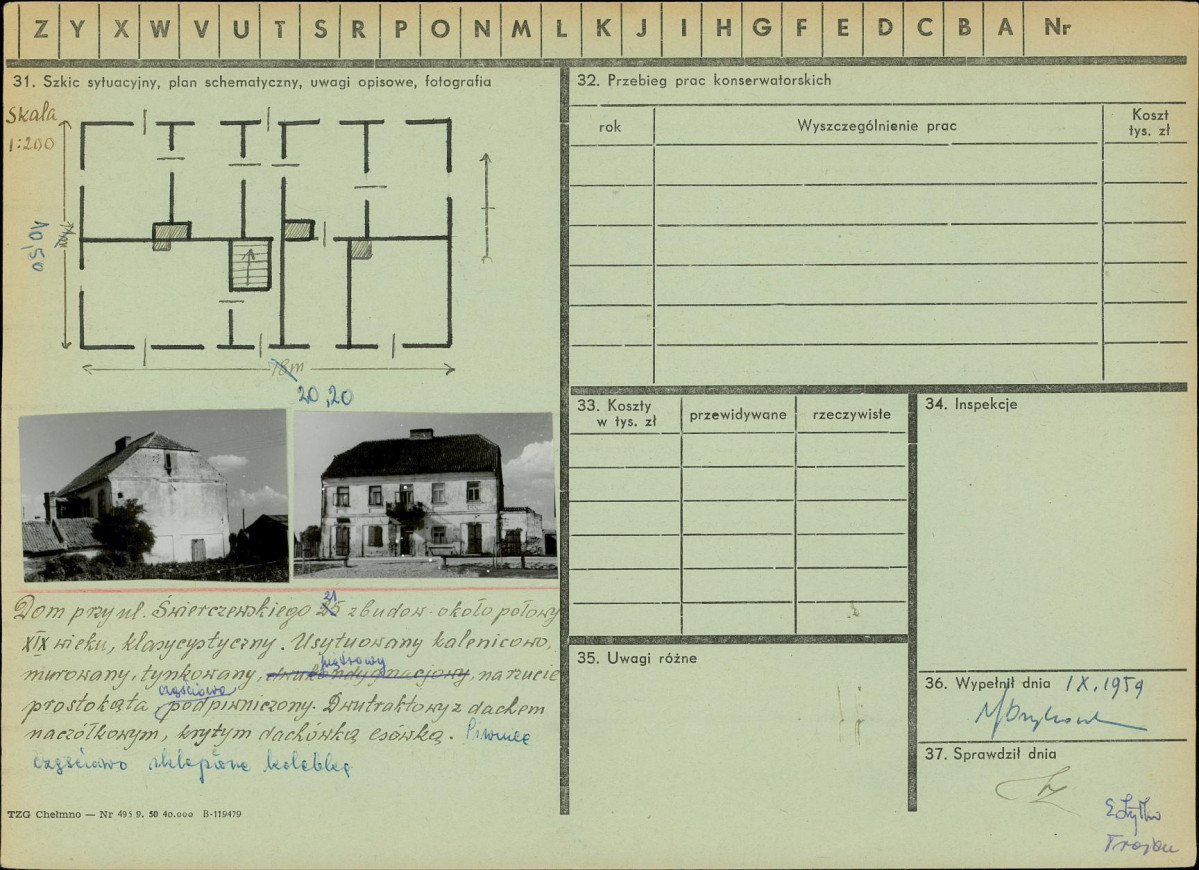 Z Y X W V U T S R P O N M L K J I H G F E D C B A Nr
31. Szkic sytuacyjny, plan schematyczny, uwagi opisowe, fotografia
Skala
1:200
10,50
18m
20,20
Dom przy ul. Świerczewskiego 25 21 zbudow. około połowy
XIX wieku, klasycystyczny. Usytuowany kalenicowo,
murowany, tynkowany, dwukondygnacjowy, piętrowy na rzucie
prostokąta częściowo podpiwniczony. Dwutraktowy z dachem
naczółkowym, krytym dachówką esówką. Piwnice
częściowo sklepione kolebką
TZG Chełmno — Nr 495 9. 50 40.000 B-119479
32. Przebieg prac konserwatorskich
rok Wyszczególnienie prac Koszt
tys. zł
33. Koszty
w tys. zł
przewidywane rzeczywiste
34. Inspekcje
35. Uwagi różne
36. Wypełnił dnia IX. 1959
37. Sprawdził dnia